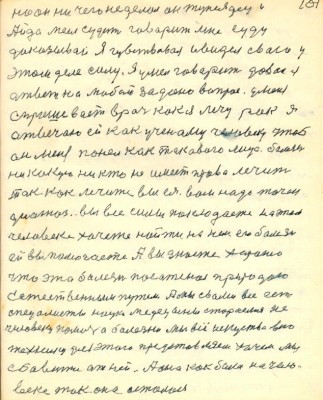 но он ни чего не делал он тунеядец и
Айда меня судить говорит мне суду
доказывай Я чувствовал и видел своего у
этом деле силу. Я умел говорить давая
ответ на любой заданой вопрос. у меня
спрашивает врач как я лечу рак я
отвечаю ей как ученаму человеку чтоб
он меня понел как такавого лица. болезнь
никакую никто не имеет права лечить
так как лечите вы ея. вам надо точен
диагноз. вы все силы накладаете на этом
человеке хочете найти на нем его болезн
ей вы помогаете А вы знаете хорошо
что эта болезнь посаженая природою
естественым путем А мы с вами все есть
специалисты наука медецины стараемся не
человеку помощ а болезни мы всё искуство свою
технику для этого представляем хочем мы
избавит от ней. А она как была на чело-
веке так она осталася